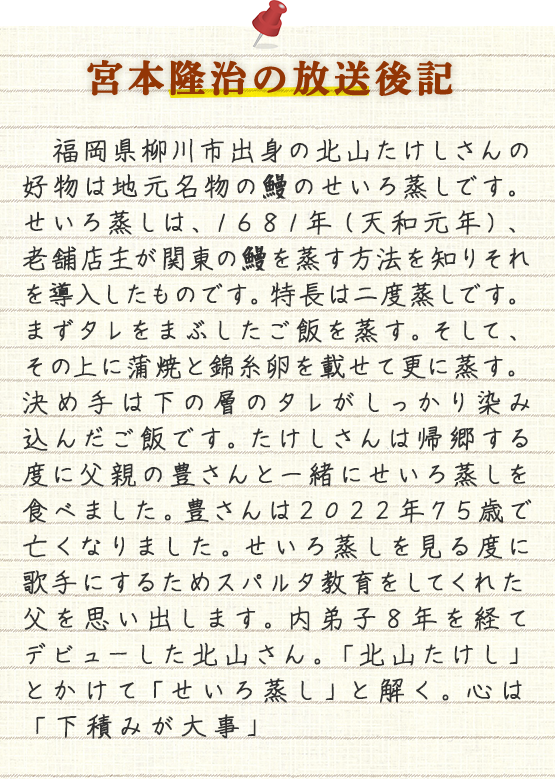 宮本隆治の放送後記
福岡県柳川市出身の北山たけしさんの
好物は地元名物の鰻のせいろ蒸しです。
せいろ蒸しは、1681年(天和元年)、
老舗店主が関東の鰻を蒸す方法を知りそれ
を導入したものです。特長は二度蒸しです。
まずタレをまぶしたご飯を蒸す。そして、
その上に蒲焼と錦糸卵を載せて更に蒸す。
決め手は下の層のタレがしっかり染み
込んだご飯です。たけしさんは帰郷する
度に父親の豊さんと一緒にせいろ蒸しを
食べました。豊さんは2022年75歳で
亡くなりました。せいろ蒸しを見る度に
歌手にするためスパルタ教育をしてくれた
父を思い出します。内弟子8年を経て
デビューした北山さん。「北山たけし」
とかけて「せいろ蒸し」と解く。心は
「下積みが大事」